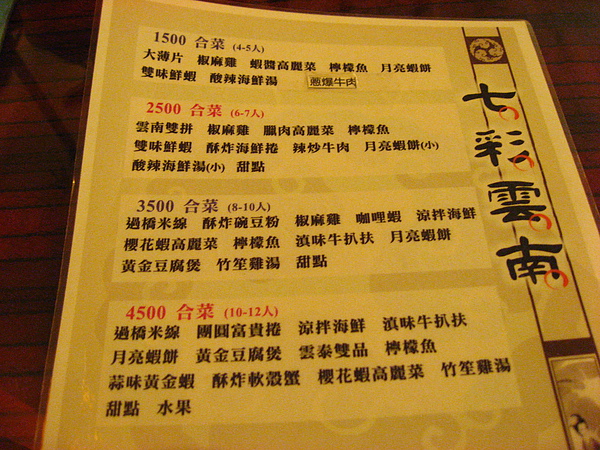 1500 合菜 (4-5人)
大薄片 椒麻雞 蝦醬高麗菜 檸檬魚 月亮蝦餅
雙味鮮蝦 酸辣海鮮湯 蔥爆牛肉
2500 合菜 (6-7人)
雲南雙拼 椒麻雞 臘肉高麗菜 檸檬魚
雙味鮮蝦 酥炸海鮮捲 辣炒牛肉 月亮蝦餅(小)
酸辣海鮮湯(小) 甜點
3500 合菜 (8-10人)
過橋米線 酥炸碗豆粉 椒麻雞 咖哩蝦 涼拌海鮮
櫻花蝦高麗菜 檸檬魚 滇味牛扒扶 月亮蝦餅
黃金豆腐煲 竹笙雞湯 甜點
4500 合菜 (10-12人)
過橋米線 團圓富貴捲 涼拌海鮮 滇味牛扒扶
月亮蝦餅 黃金豆腐煲 雲泰雙品 檸檬魚
蒜味黃金蝦 酥炸軟殼蟹 櫻花蝦高麗菜 竹笙雞湯
甜點 水果
七彩雲南